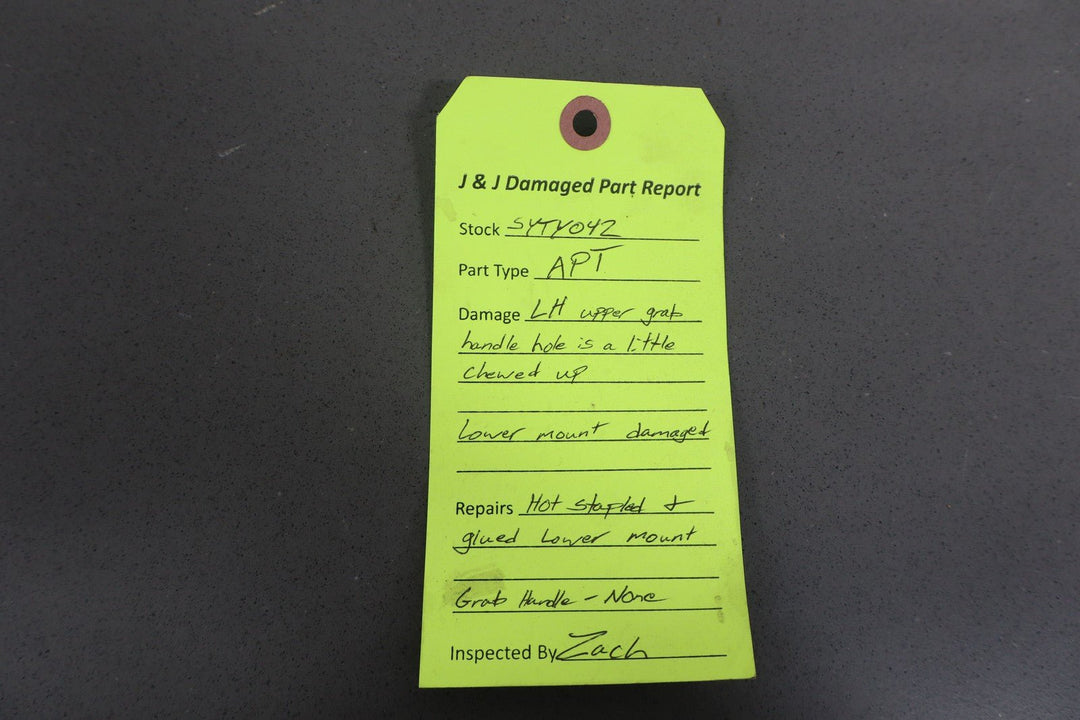 J & J Damaged Part Report
Stock SYTY042
Part Type APT
Damage LH upper grab
handle hole is a little
chewed up
Lower mount damaged
Repairs Hot stapled &
glued Lower mount
Grab Handle - None
Inspected By Zach